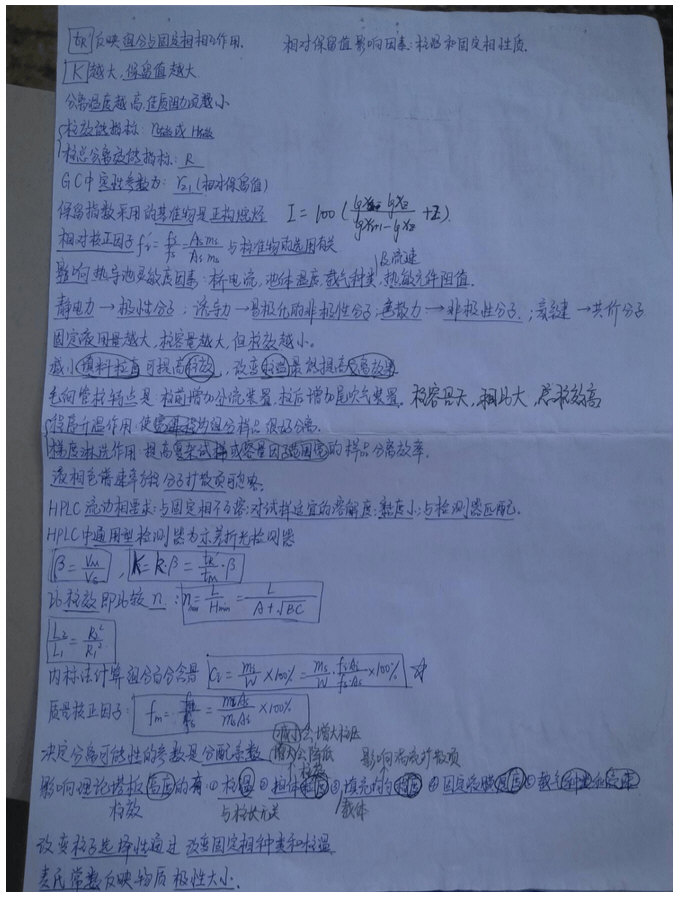 t'R 反映组分与固定相相互作用. 相对保留值影响因素:柱温和固定相性质.
K越大,保留值越大
分离温度越高,传质阻力项越小
柱效能指标: n有效或H有效
柱总分离效能指标: R
GC中定性参数为: r21 (相对保留值)
保留指数采用的基准物是正构烷烃 I = 100 ( + Z).
相对校正因子 与标准物或选用有关
及流速
影响热导池灵敏度因素:桥电流,池体温度,载气种类,热敏元件阻值.
静电力→极性分子;诱导力→易极化的非极性分子;色散力→非极性分子.;氢键→共价分子
固定液用量越大,柱容量越大,但柱效越小.
减小填料粒直可提高柱效,改变柱温最能提高
毛细管柱特点是柱前增加分流装置,柱后增加尾吹气装置. 柱容量大,相比大,总柱效高
程序升温作用:使宽沸程多组分样品很好分离.
梯度淋洗作用:提高复杂试样或容量因子范围宽的样品分离效率.
液相色谱速率方程分子扩散项可忽略.
HPLC流动相要求:与固定相不互溶;对试样适宜的溶解度;黏度小;与检测器匹配.
HPLC中通用型检测器为示差折光检测器
β = VM/VS , K = k·β = t'R/tM ·β
比柱效即比较n : n = L/Hmin = L/(A+√BC)
L2/L1 = R2²/R1²
内标法计算组分百分含量 Ci = mi/W ×100% = ms/W · fiAi/fsAs ×100% ☆
质量校正因子: fm = ×100%
减小会增大柱压
决定分离可能性的参数是分配系数 增大会降低 影响涡流扩散项
柱效
影响理论塔板高度的有:①柱温②担体粒度③填充均匀程度④固定液膜厚度⑤载气种类和流速
柱效 与柱长无关 载体
改变柱子选择性通过改变固定相种类和柱温
麦氏常数反映物质极性大小.